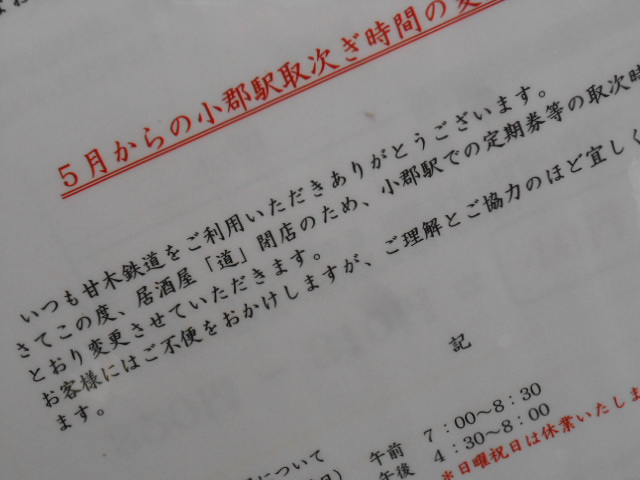 5月からの小郡駅取次ぎ時間の変
いつも甘木鉄道をご利用いただきありがとうございます。
さてこの度、居酒屋「道」閉店のため、小郡駅での定期券等の取次時
とおり変更させていただきます。
お客様にはご不便をおかけしますが、ご理解とご協力のほど宜しく
ます。
記
について
午前 7:00～8:30
午後 4:30～8:00
＊日曜祝日は休業いたしま